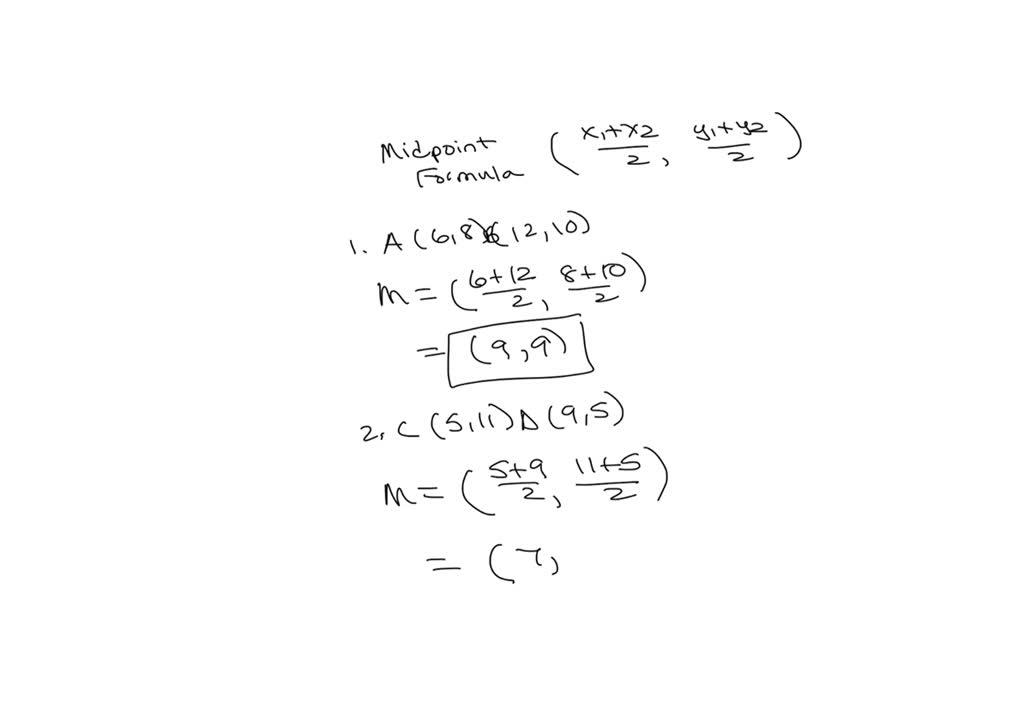 Midpoint Formula ( x₁+x₂/2, y₁+y₂/2 )
1. A (6,8) B (12,10)
M = ( 6+12/2, 8+10/2 )
= (9,9)
2. C (5,11) D (9,5)
M = ( 5+9/2, 11+5/2 )
= (7,